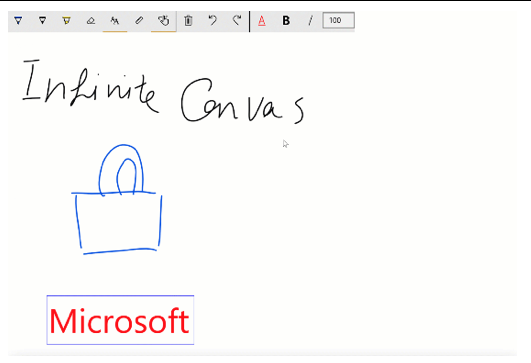 A B I 100
Infinite Canvas
Microsoft